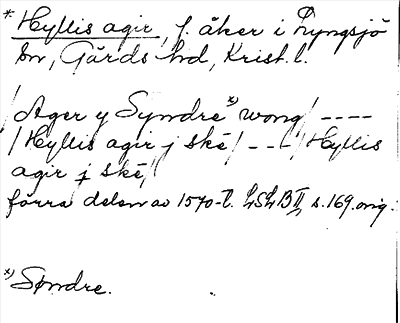 * Hyllis agir, f. åker i Lyngsjö
sn, Gärds hd, Krist. l.
/Ager y Syndre*) wong/ ----
/Hyllis agir j ské/ --- /Hyllis
agir j ské/
förra delen av 1570-t. LSLB II, s. 169. orig.
*) Søndre.